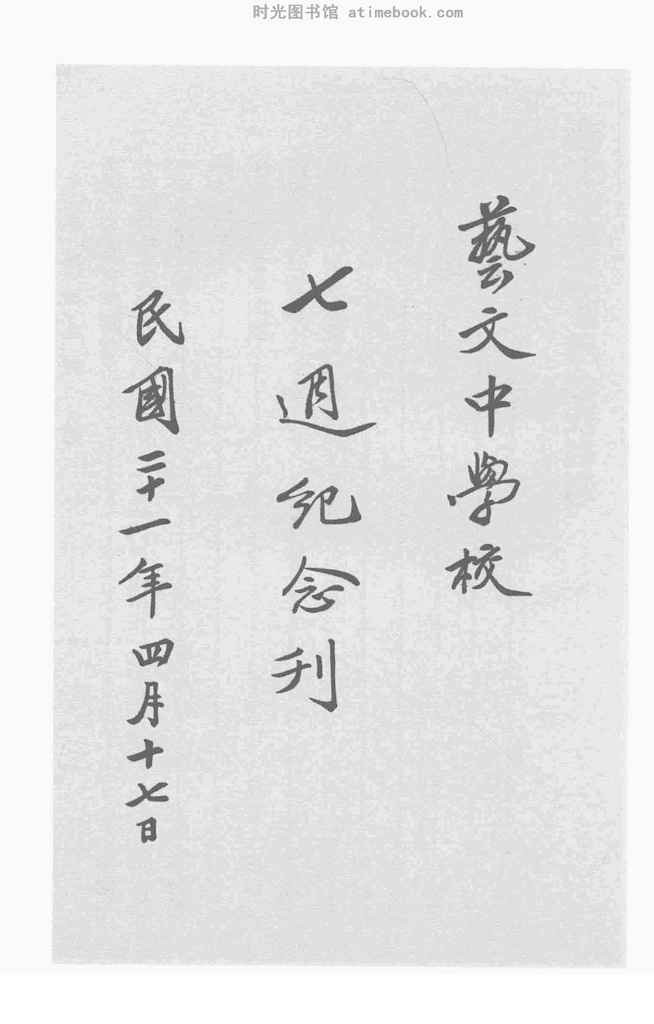 时光图书馆 atimebook.com
藝文中學校
七週紀念刊
民國二十一年四月十七日